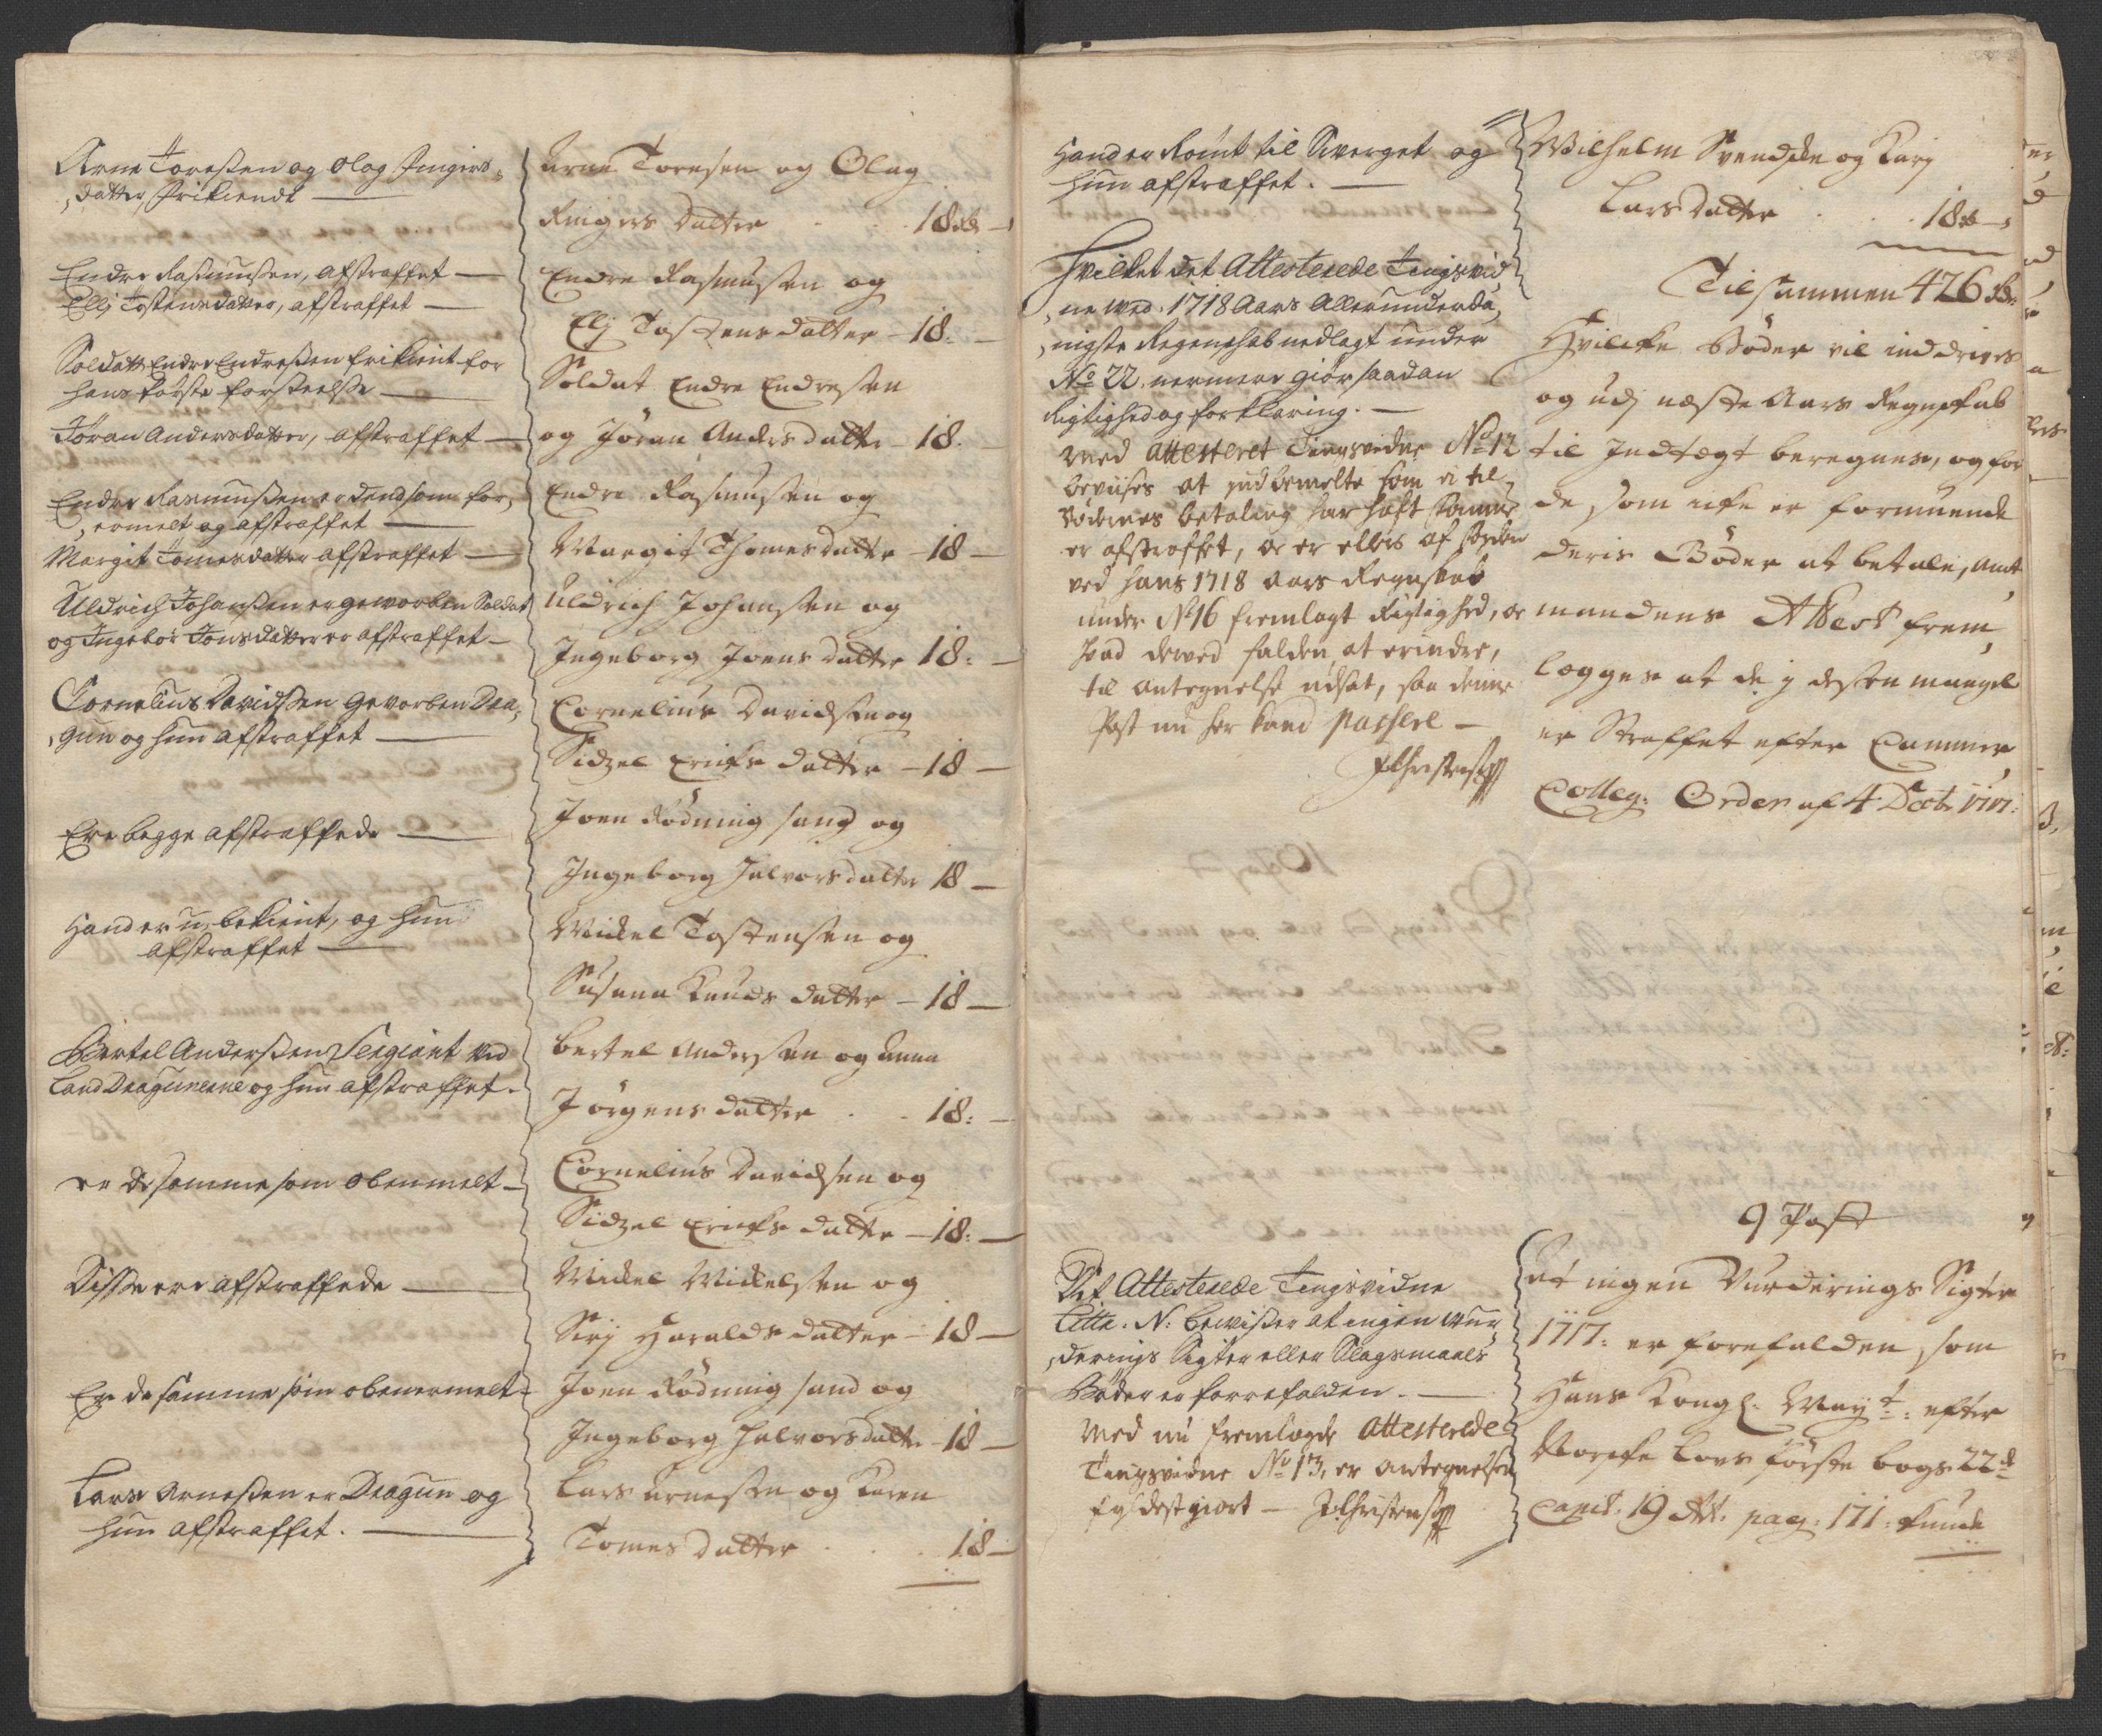 Arne Toreßen og Olog Ringers-
datter, frikiendt —
Endre Rasmusßen, afstraffet —
Ellj Tostensdatter, afstraffet —
Soldatt Endre Endreßen frikient for
hans første forseelse —
Jöran Andersdatter, afstraffet —
Endre Rasmusßen er dend som for-
ermelt og afstraffet —
Margit Tomesdatter afstraffet —
Uldrich Johanßen er geworben Soldat
og Ingebor Jonsdatter er afstraffet —
Cornelius Davidßen Geworben Dra-
gun og hun afstraffet —
Ere begge afstraffede —
Hand er u-bekient, og hun
afstraffet —
Bertel Anderßen Sergiant ved
Land Dragunerne og hun afstraffet.
er de samme som obenmelt —
Disse ere afstraffede —
Ere de samme som obenermelt —
Lars Arneßen er Dragun og
hun afstraffet. —
Arne Toresen og Olag
Ringers datter . . 18 rdr —
Endre Rasmusen og
Elj Tostens datter — 18: —
Soldat Endre Endresen
og Jöran Anders datter — 18. —
Endre Rasmusen og
Margit Thomes datter — 18 —
Uldrich Johansen og
Ingeborg Joens datter 18: —
Cornelius Davidsen og
Sidzel Erichs datter — 18 —
Joen Rödning sand og
Ingeborg Halvors datter 18 —
Mickel Tostensen og
Susana Knuds datter — 18 —
Bertel Andersen og Anna
Jörgens datter . . 18: —
Cornelius Davidsen og
Sidzel Erichs datter — 18: —
Mickel Mickelsen og
Sirj Haralds datter — 18 —
Joen Rödning sand og
Ingeborg Halvorsdatter — 18 —
Lars Arnesen og Karen
Tomes datter . . . 18 —
Hand er Römt til Sverget og
hun afstraffet. —
Hvilket det Attesterede Tingsvid-
ne wed 1718 Aars Allerunderdå-
nigste Regenshab nedlagt under
No 22. nermere giör saadan
Rigtighed og forklaring. —
Med Attesteret Tingsvidne No 12
beviises at indbemelte som ei til
bödernes betaling har haft
er afstraffet, oc er ellers af
ved hans 1718 Aars Regnskab
under No 16 fremlagt Rigtighed, oc
hvad derved falden at erindre,
til Antegnelse udsat, saa denne
Post nu her kand passere —
JChristens
Wilhelm Svendsen og Karj
Lars datter . . . 18 rd —
Tilsammen 426 rd:
Hvilcke Böder vil inddrives
og udj næste Aars Regnskab
til Indtægt beregnes, og for
de som icke er formuende
deris Böder at betale, Amt-
mandens Attest frem-
legges at de i desen mangel
er Straffet efter Cammer
Colleg: Order af 4 Decbr 1717:
9 Post
Det Attesterede Tingsvidne
Litta. N: bewißer at ingen Wur-
derings Sigter eller Slagsmaals
Böder er forrefalden. —
Med nu fremlagde Attesterede
Tingsvidne No 13, er Antegnelsen
fyldest giort — JChristens
At ingen Vurderings Sigter
1717: er forefalden, som
Hans Kongl: Mayt: efter
Norske Lovs förste bogs 22de
Capit. 19 Art. pag: 171: kunde